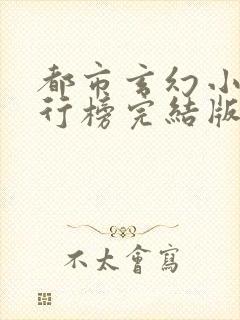 都市玄幻小
行榜完結版
不太會寫